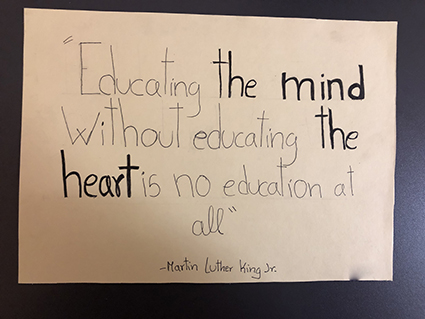 "Educating the mind
Without educating the
heart is no education at
all"
-Martin Luther King Jr.